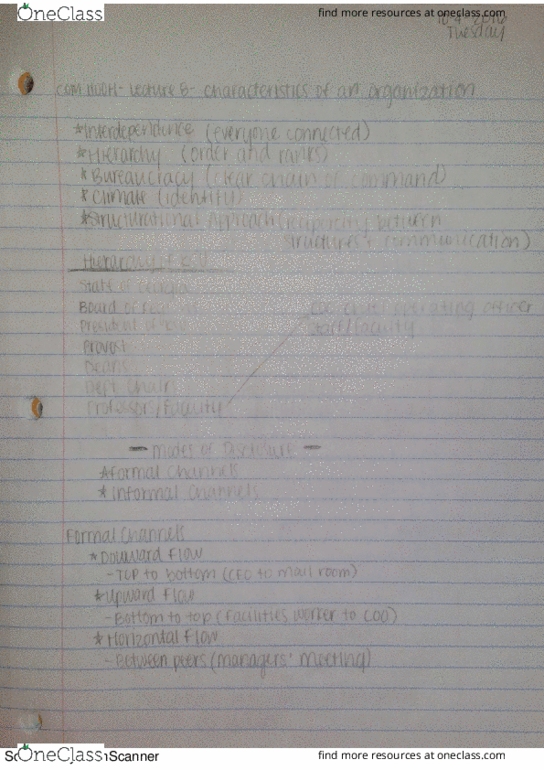 OneClass
find more resources at oneclass.com
Tuesday
Lecture 8- characteristics of an organization
*Interdependence (everyone connected)
*Hierarchy (order and ranks)
*Bureaucracy (clear chain of command)
*Climate (identity)
*Structurational Approach (reciprocity between
structures + communication)
Hierarchy of
State of Georgia
Board of
President of
operating officer
staff/faculty
Provost
Deans
Dept Chair
Professor/Faculty
- Modes of Disclosure -
*Formal Channels
*Informal Channels
Formal Channels
*Downward Flow
-Top to bottom (CEO to mail room)
*Upward Flow
-Bottom to top (Facilities worker to COO)
*Horizontal Flow
-Between peers (managers' meeting)
OneClass
Scanner
find more resources at oneclass.com